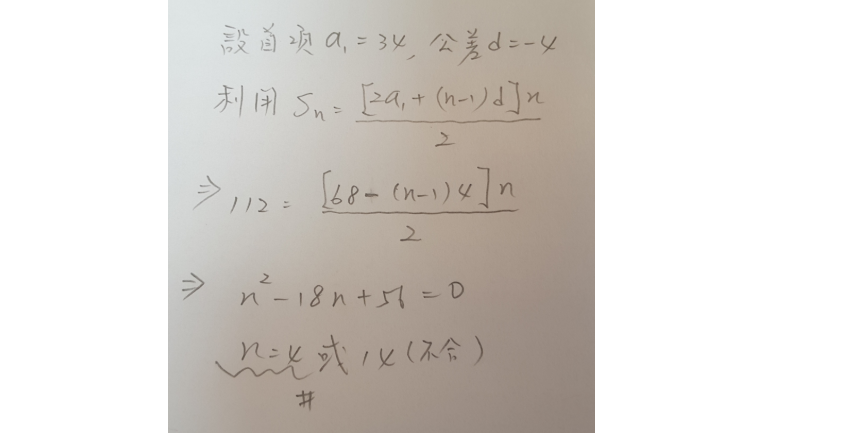 設首項 a₁ = 34, 公差 d = -4
利用 Sₙ = [2a₁ + (n-1)d]n / 2
⇒ 112 = [68 - (n-1)4]n / 2
⇒ n² - 18n + 56 = 0
n = 4 或 14 (不合)
#